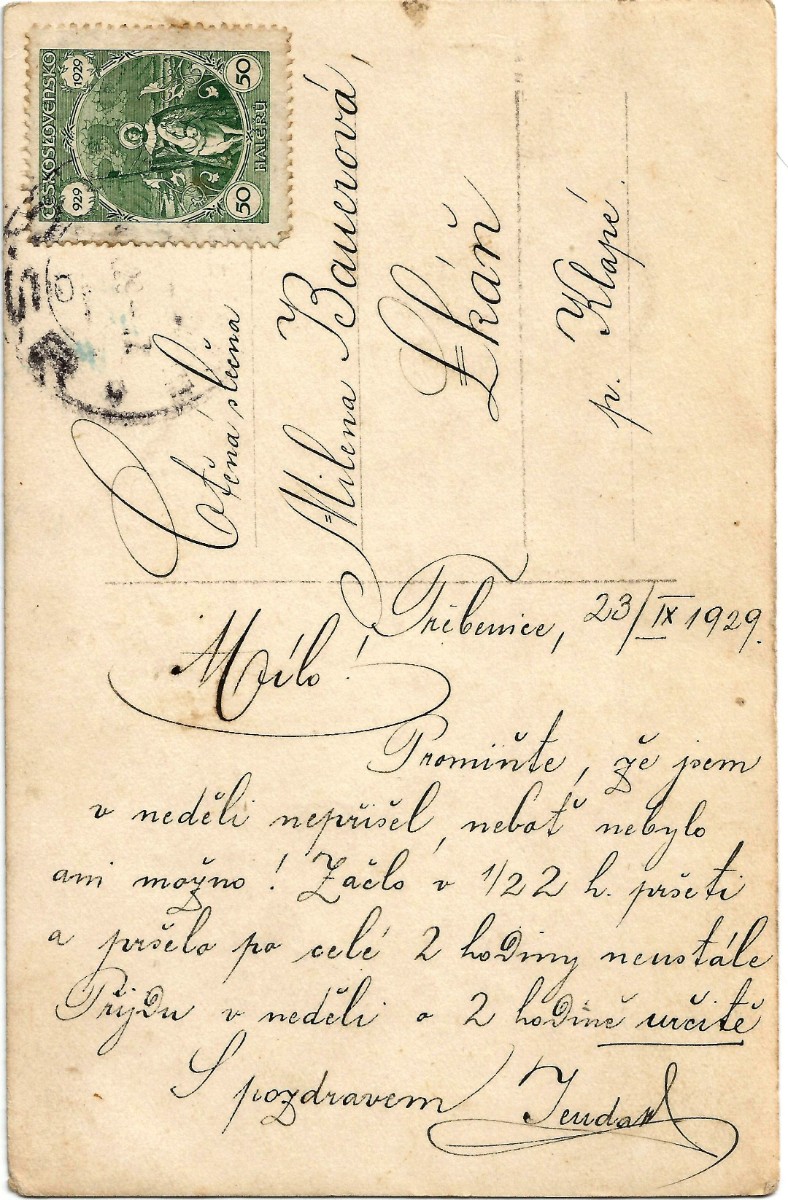 ČESKOSLOVENSKO
1929
929
50
50
HALÉŘŮ
Ctěná slečna
Milena Bauerová,
Lkáň
p. Klapé.
Třebenice, 23/IX 1929.
Mílo!
Promiňte, že jsem
v neděli nepřišel, neboť nebylo
ani možno! Začlo v 1/2 2 h. pršeti
a pršelo po celé 2 hodiny neustále
Přijdu v neděli o 2 hodině určitě
S pozdravem